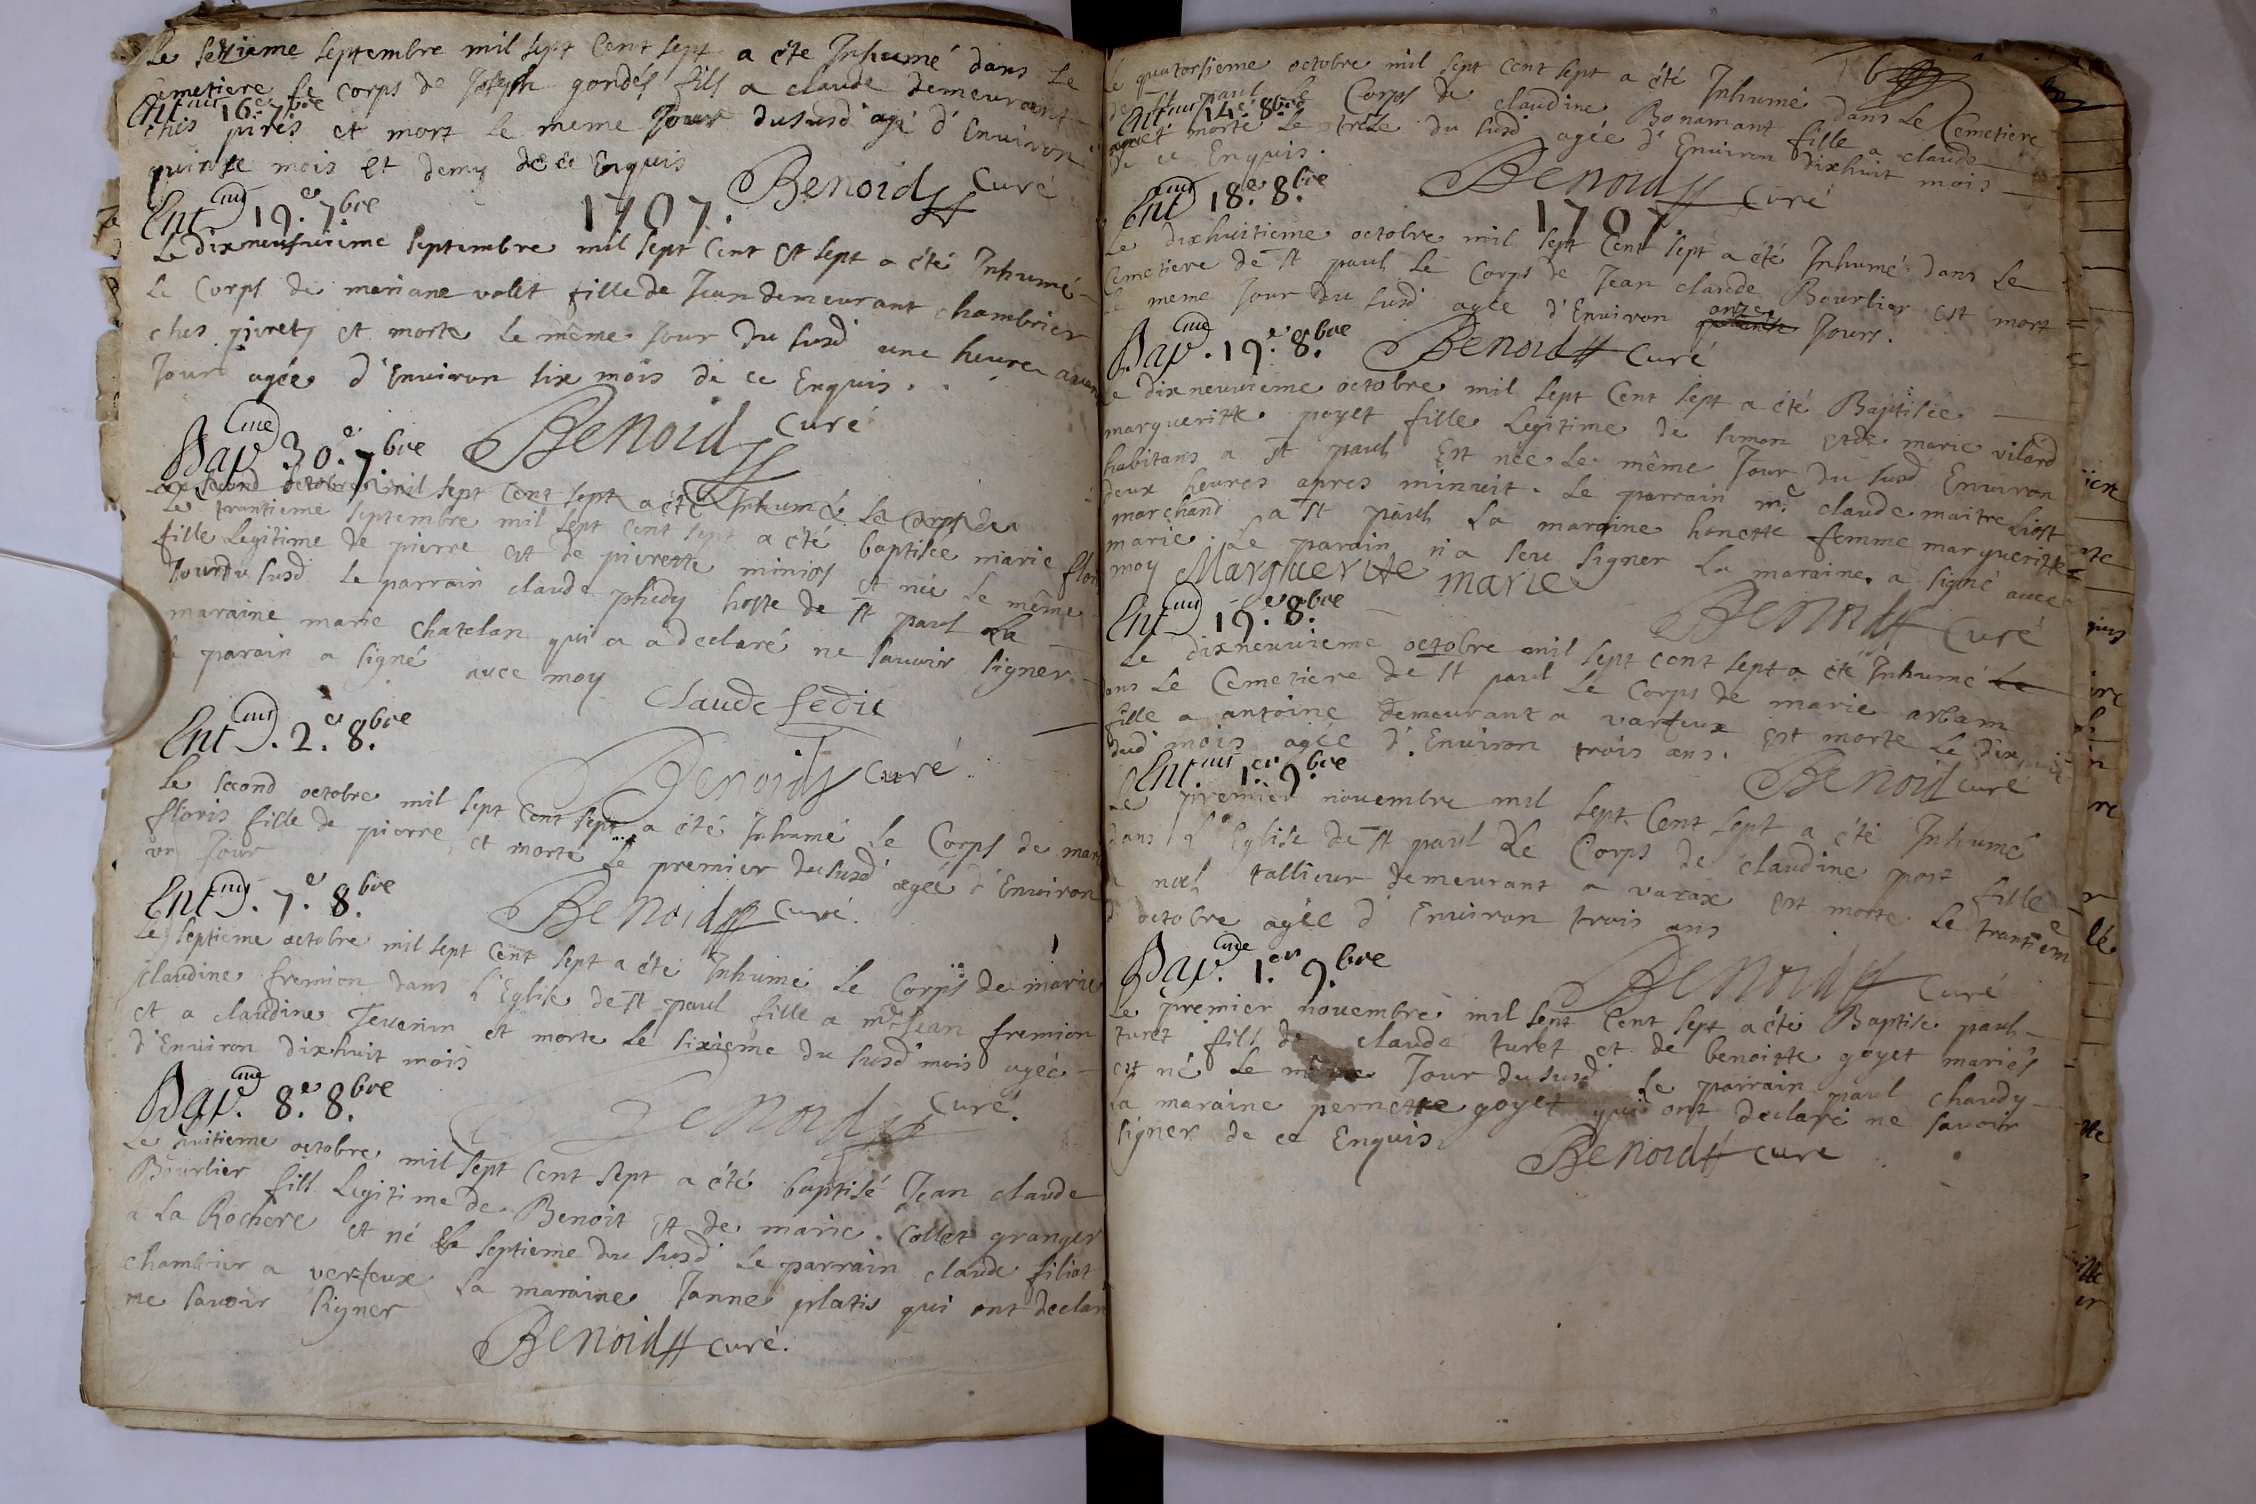 Le seizieme septembre mil sept cent sept a été Inhumé dans Le
cemetiere Le corps de Joseph gondés fils a claude demeurant
Ent 16.e 7bre
chés et mort Le meme Jour du susd agé d'Environ
quinse mois et demy de ce Enquis
Benoid Curé
Ent 19.e 7.bre
1707.
Le dixneufvieme septembre mil sept Cent et sept a été Inhumé
Le Corps de meriane volet fille de Jean demeurant chambrier
ches et morte Le même Jour du susd une heure avan
Jour agée d'Environ six mois de ce Enquis.
Benoid Curé
Bap 30.e 7.bre
second octobre mil sept cent sept a été Inhumé Le Corps de
Le trantieme septembre mil sept cent sept a été baptisée marie
fille Legitime de pierre et de pierrette minios et née Le même
Jour du susd Le parrain claude phedy hoste de st paul La
maraine marie chatelan qui a a declaré ne savoir signer
parain a signé avec moy
Claude fedit
Benoid Curé
Ent. 2.e 8.bre
Le second octobre mil sept Cent sept a été Inhumé Le Corps de mar
floris fille de pierre et morte Le premier du susd agée d'Environ
un Jour
Benoid Curé.
Ent. 7.e 8.bre
Le septieme octobre mil sept Cent sept a été Inhumé Le Corps de marie
claudine fremion dans L'Eglise de st paul fille a mr Jean fremion
et a claudine Tevenin et morte Le sixiéme du susd mois agée
d'Environ dixhuit mois
Benoid Curé.
Bap. 8.e 8.bre
Le huitieme octobre mil sept Cent sept a été baptisé Jean claude
Bourlier fils Legitime de Benoit et de marie Collet granger
a La Rochere et né Le septieme du susd Le parrain claude filiat
chambrier a verseux La maraine Janne platis qui ont declar
ne savoir signer
Benoid curé.
Le quatorsieme octobre mil sept cent sept a été Inhumé dans Le Cemetiere
de st paul Le Corps de claudine Bonamant fille a claude
Ent 14.e 8bre
et morte Le trese du susd agée d'Environ dixhuit mois
de ce Enquis.
Benoid Curé
Ent 18.e 8.bre
1707
Le dixhuitieme octobre mil sept Cent sept a été Inhumé dans Le
Cemetiere de st paul Le Corps de Jean claude Bourlier est mort
Le meme Jour du susd agée d'Environ onze Jours.
Bap. 19.e 8.bre
Benoid Curé
Le dixneuvieme octobre mil sept Cent sept a été Baptisée
margueritte poyet fille Legitime de simon et de marie vilard
habitans a st paul Est née Le même Jour du susd Environ
deux heures apres minuit. Le parrain mr. claude maitre
marchand a st paul La maraine honette femme margueritte
marie. Le parain n'a seu signer La maraine a signé avec
moy Marguerite marie
Benoid Curé
Ent 19.e 8.bre
Le dixneuvieme octobre mil sept cent sept a été Inhumé Le
dans Le Cemetiere de st paul Le Corps de marie arbam
fille a antoine demeurant a varseux est morte Le dix
dud mois agée d'Environ trois ans.
Benoid curé
Ent. 1.er 9.bre
Le premier novembre mil sept Cent sept a été Inhumé
dans L'Eglise de st paul Le Corps de claudine post fille
a noel tallieur demeurant a varax est morte Le trantiem
d'octobre agée d'Environ trois ans
Benoid Curé
Bap. 1.er 9.bre
Le premier novembre mil sept Cent sept a été Baptisé paul
turet fils de claude turet et de benoitte goyet mariés
est né Le même Jour du susd Le parrain paul chaudy
La maraine pernette goyet qui ont declaré ne savoir
signer de ce Enquis
Benoid curé